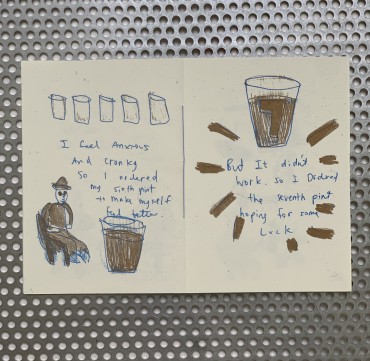 I feel Anxious
And Cranky
So I ordered
my sixth pint
to make myself
feel better.
7
But It didn't
work. So I Ordered
the seventh pint
hoping for some
Luck